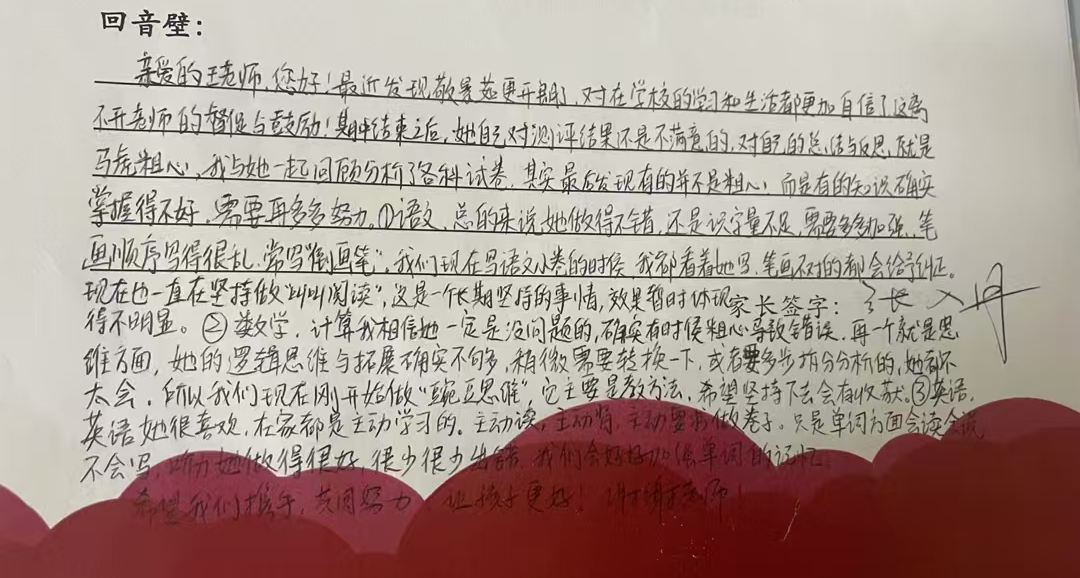 回音壁：
亲爱的王老师，您好！最近发现敬景茹更开朗了，对在学校的学习和生活都更加自信了，这离
不开老师的督促与鼓励！期中结束之后，她自己对测评结果还是不满意的，对自己的总结与反思就是
马虎粗心，我与她一起回顾分析了各科试卷，其实最后发现有的并不是粗心，而是有的知识确实
掌握得不好，需要再多多努力。①语文，总的来说她做得不错，还是识字量不足，需要多多加强，笔
画顺序写得很乱，常写“倒画笔”，我们现在写语文小卷的时候，我都看着她写，笔画不对的都会给予纠正。
现在也一直在坚持做“叫叫阅读”，这是一个长期坚持的事情，效果暂时体现
家长签字：
得不明显。②数学，计算我相信她一定是没问题的，确实有时候粗心导致错误，再一个就是思
维方面，她的逻辑思维与拓展确实不够多，稍微需要转换一下，或者要多步拆分分析的，她都不
太会，所以我们现在刚开始做“豌豆思维”，它主要是教方法，希望坚持下去会有收获。③英语，
英语她很喜欢，在家都是主动学习的。主动读，主动背，主动要求做卷子。只是单词方面会读会说
不会写，听力她做得很好，很少很少出错，我们会好好加强单词的记忆。
希望我们携手，共同努力，让孩子更好！谢谢老师！